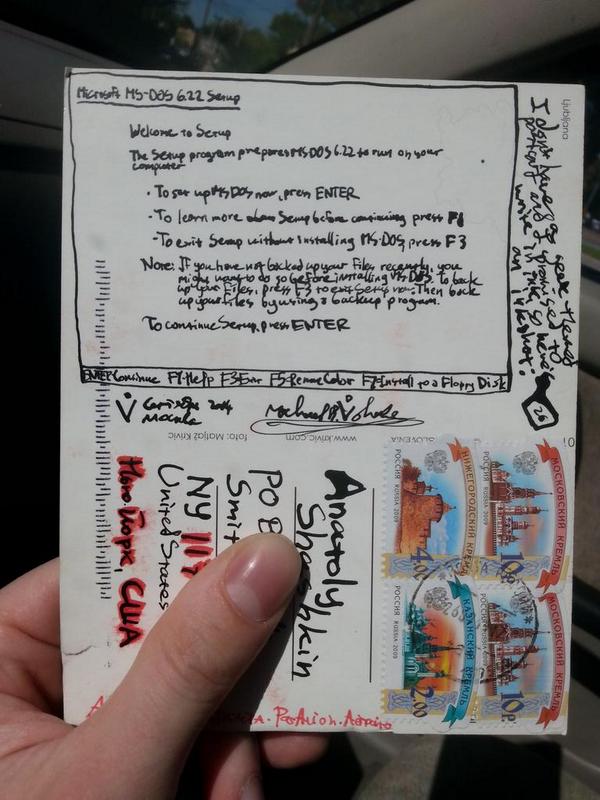 Microsoft MS-DOS 6.22 Setup
Welcome to Setup
The Setup program prepares MS DOS 6.22 to run on your
computer
· To set up MS DOS now, press ENTER
- To learn more about Setup before continuing press F1
- To exit Setup without installing MS-DOS, press F3
Note: If you have not backed up your files recently, you
might want to do so before installing MS DOS. To back
up your files, press F3 to exit Setup now. Then back
up your files by using a backup program.
To continue Setup, press ENTER
ENTER=Continue F1=Help F3=Exit F5=Remove Color F7=Install to a Floppy Disk
I don't have any space themed
postcard and I promised to
write in this, so here's
an
26
Ljubljana
2014
Москва
foto: Matjaž Krivic
www.krivic.com
SLOVENIA
Anatoly
Shashkin
PO
Smit
NY 117
United States
Нью Йорк, США
НИЖЕГОРОДСКИЙ КРЕМЛЬ
РОССИЯ RUSSIA 2009
4.00
МОСКОВСКИЙ КРЕМЛЬ
РОССИЯ RUSSIA 2009
10р.
КАЗАНСКИЙ КРЕМЛЬ
РОССИЯ RUSSIA 2009
2.00
МОСКОВСКИЙ КРЕМЛЬ
РОССИЯ RUSSIA 2009
10р.